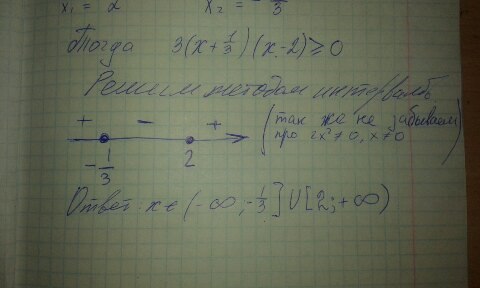 x₁ = 2 x₂ = -1/3
Тогда 3(x+1/3)(x-2)≥0
Решим методом интервалов
+ - + (так же не забываем
про 2x²≠0, x≠0)
-1/3 2
Ответ: x∈(-∞;-1/3]U[2;+∞)